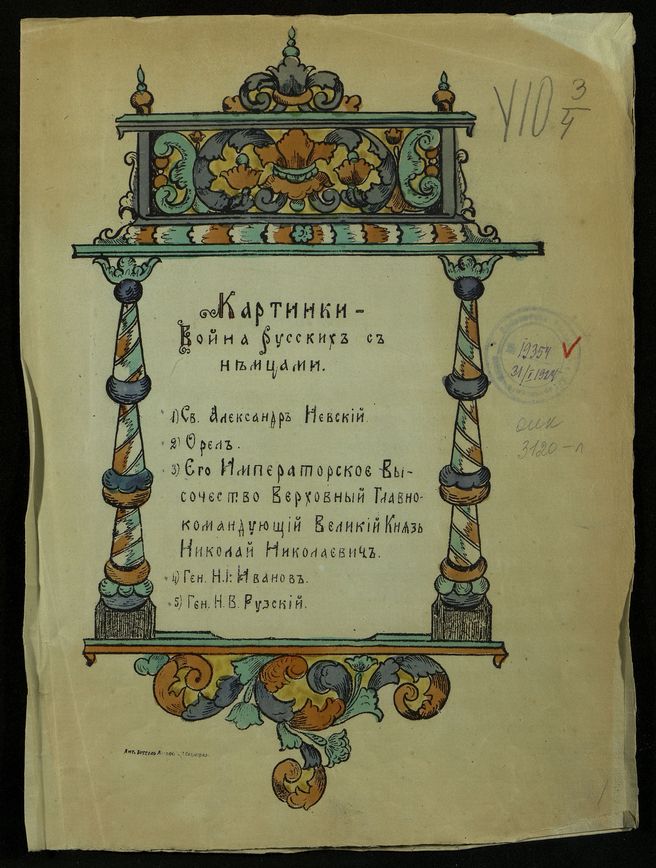 VIO 3/4
Картинки –
Война Русскихъ съ
нѣмцами.
1) Св. Александръ Невскій
2) Орелъ.
3) Его Императорское Вы-
сочество Верховный Главно-
командующій Великій Князь
Николай Николаевичъ.
4) Ген. Н.І. Ивановъ.
5) Ген. Н.В. Рузскій.
19354
31/I 1927
3120-л